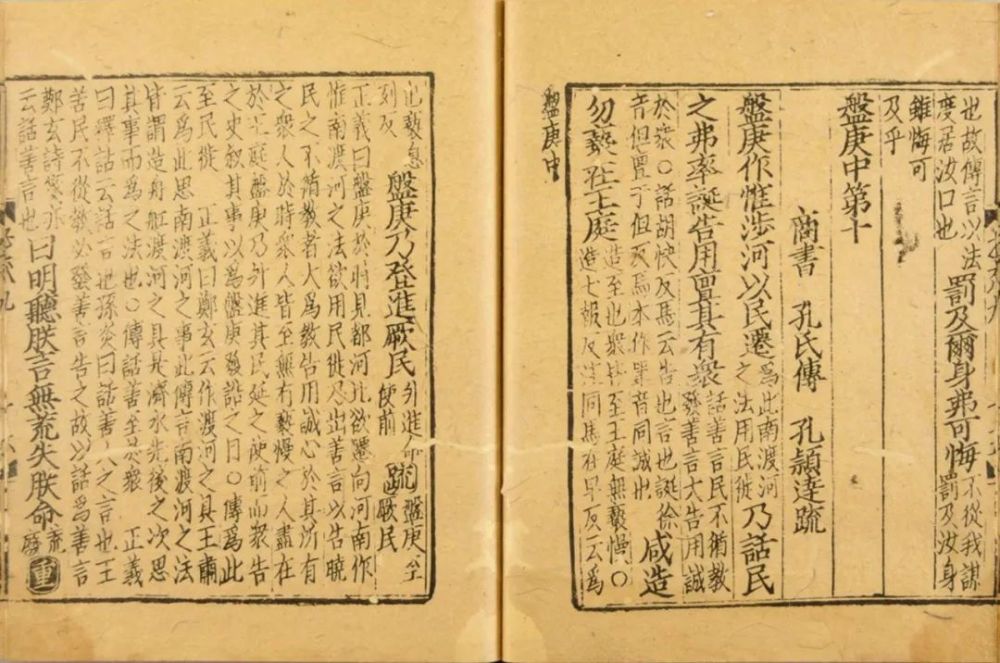 也故傳言以法
度居汝口也
罰及爾身弗可悔
不從我謀
罰及汝身
雖悔可
及乎
盤庚中第十
商書 孔氏傳 孔穎達疏
盤庚作惟涉河以民遷
為此南渡河
之法用民徙
乃話民
之弗率誕告用亶其有衆
話善言民不循教
發善言大告用誠
於衆○話胡快反馬云告也言也誕徐
音但亶丁但反馬本作單音同誠也
咸造
勿褻在王庭
造至也衆皆至王庭無褻慢○
造七報反注同馬在早反云為
盤庚中
也褻息
列反
盤庚乃登進厥民
升進命
使前
疏
盤庚至
厥民
正義曰盤庚於時見都河北欲遷向河南作
惟南渡河之法欲用民徙乃出善言以告曉
民之不循教者大為教告用誠心於其所有
之衆人於時衆人皆至無有褻慢之人盡在
於王庭盤庚乃升進其民延之使前而衆告
之史叙其事以為盤庚發誥之目○傳為此
至民徙 正義曰鄭玄云作渡河之具王肅
云為此思南渡河之事此傳言南渡河之法
皆謂造舟舡渡河之具是濟水先後之次思
其事而為之法也○傳話善至衆 正義
曰釋詁云話言也孫炎曰話善人之言也王
苦民不從教必發善言告之故以話為善言
鄭玄詩箋亦
云話善言也
曰明聽朕言無荒失朕命
荒
廢
重